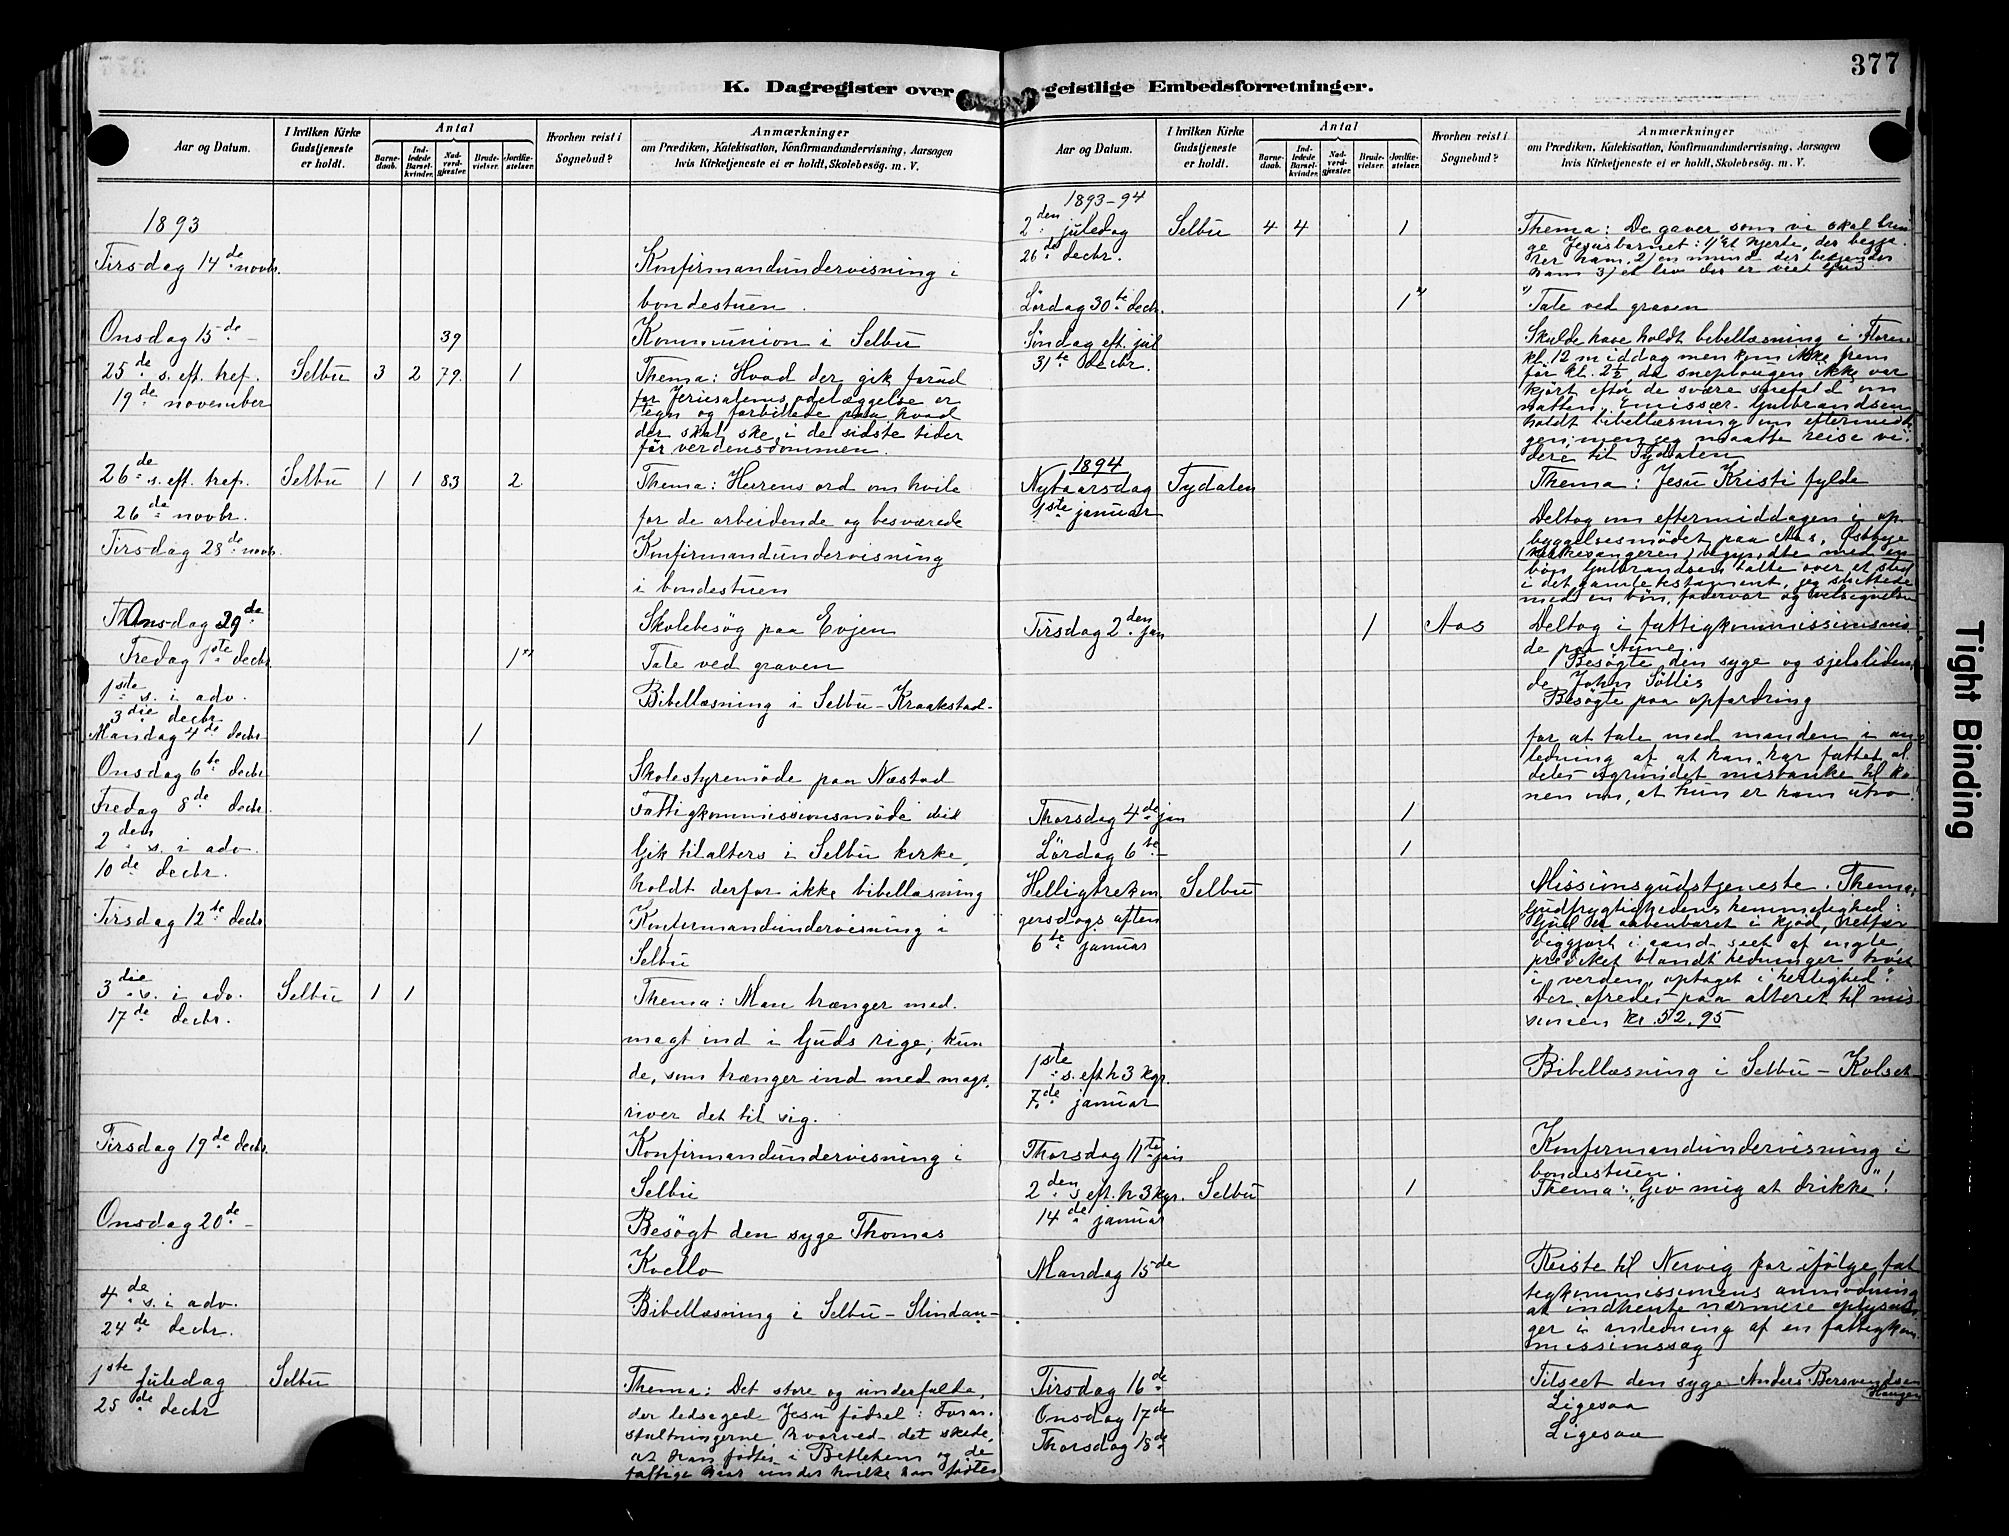 377
K. Dagregister over geistlige Embedsforretninger.
Aar og Datum.
I hvilken Kirke Gudstjeneste er holdt.
Antal
Barnedaab.
Indledede Barselkvinder.
Nadverdgjester.
Brudevielser.
Jordfæstelser.
Hvorhen reist i Sognebud?
Anmærkninger
om Prædiken, Katekisation, Konfirmandundervisning, Aarsagen
hvis Kirketjeneste ei er holdt, Skolebesög. m. V.
1893
Tirsdag 14de novbr. Konfirmandundervisning i
bondestuen.
Onsdag 15de – 39 Kommunion i Selbu
25de s. eft. tref. Selbu 3 2 79. 1 Thema: Hvad der gik forud
19de november for Jerusalems ødelæggelse er
tegn og forbillede paa hvad
der skal ske i de sidste tider
før verdensdommen.
26de s. eft. tref. Selbu 1 1 83 2 Thema: Herrens ord om hvile
26de novbr. for de arbeidende og besværede
Tirsdag 28de novbr. Konfirmandundervisning
i bondestuen
Onsdag 29de Skolebesøg paa Evjen
Fredag 1ste decbr. 1 Tale ved graven
1ste s. i adv. Bibellæsning i Selbu – Kraakstad
3die decbr.
Mandag 4de decbr 1
Onsdag 6te decbr Skolestyremöde paa Næstad
Fredag 8de decbr. Fattigkommissionsmöde ibid
2den s. i adv. Gik tilalters i Selbu kirke,
10de decbr. holdt derfor ikke bibellæsning
Tirsdag 12te decbr Konfirmandundervisning i
Selbu
3die s. i adv. Selbu 1 1 Thema: Man trænger med
17de decbr. magt ind i Guds rige, kun
de, som trænger ind med magt,
river det til sig.
Tirsdag 19de decbr. Konfirmandundervisning i
Selbu
Onsdag 20de – Besögt den syge Thomas
Kvello
4de s. i adv. Bibellæsning i Selbu – Slindan
24de decbr.
1ste juledag Selbu Thema: Det store og underfulde,
25de decbr der ledsaged Jesu födsel: Foran-
staltningerne, hvorved det skede,
at han födtes i Betlehem og de
fattige kaar under hvilke han födtes
Aar og Datum.
I hvilken Kirke Gudstjeneste er holdt.
Antal
Barnedaab.
Indledede Barselkvinder.
Nadverdgjester.
Brudevielser.
Jordfæstelser.
Hvorhen reist i Sognebud?
Anmærkninger
om Prædiken, Katekisation, Konfirmandundervisning, Aarsagen
hvis Kirketjeneste ei er holdt, Skolebesög. m. V.
1893–94
2den juledag Selbu 4 4 1 Thema: De gaver som vi skal brin-
26de decbr. ge Jesusbarnet: 1) et hjerte, der begjæ-
rer ham, 2) en mund der bekjender
ham 3) et liv der er viet Gud
Lördag 30te decbr. 1 Tale ved graven
Søndag eft. jul Skulde have holdt bibellæsning i Floren
31te decbr. kl. 12 middag men kom ikke frem
før kl. 2½, da sneplougen ikke var
kjört efter de svære snefald om
natten. Emissær Gulbrandsen
holdt bibellæsning om eftermidda-
gen, men jeg maatte reise vi-
dere til Tydalen
1894
Nytaarsdag Tydalen Thema: Jesu Kristi fylde
1ste januar Deltog om eftermiddagen i op-
byggelsesmödet paa Aas, Østbye
(kirkesangeren) begyndte med en
bön Gulbrandsen talte over et sted
i det gamle testament, jeg sluttede
med en bön, fadervor og velsignelsen
Tirsdag 2den jan 1 Aas Deltog i fattigkommissionsmö-
de paa Aune.
Besøgte den syge og sjelsliden-
de John Löttis
Besögte paa opfordring
for at tale med manden i an-
ledning af at han har fattet al-
deles ugrundet mistanke til ko-
nen om, at hun er ham utro!
Thorsdag 4de jan 1
Lördag 6te – 1
Helligtrekon- Selbu Missionsgudstjeneste. Thema:
gersdags aften Gudfrygtighedens hemmelighed:
6te januar Gud er aabenbaret i kjød, retfær-
diggjort i aand, seet af engle,
prediket blandt hedninger, troet
i verden, optaget i herlighed".
Der ofredes paa alteret til mis-
sionen kr. 52,95
1ste s. eft h 3 kgr. Bibellæsning i Selbu – Kolset
7de januar
Thorsdag 11te jan Konfirmandundervisning i
bondestuen.
2den s. eft. h 3 kgr. Selbu 1 Thema: „Giv mig at drikke"!
14de januar
Mandag 15de Reiste til Nervig for ifølge fat-
tigkommissionens anmodning
at indhente nærmere oplysnin-
ger i anledning af en fattigkom-
missionssag
Tirsdag 16de Tilseet den syge Anders Bersvendsen
Haugen
Onsdag 17de Ligesaa
Thorsdag 18de Ligesaa
Tight Binding